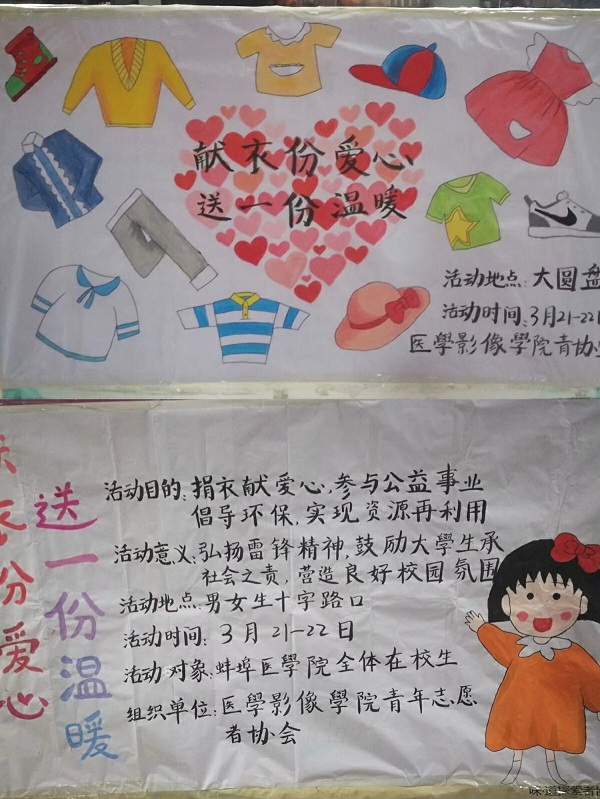 献衣份爱心
送一份温暖
活动地点:大圆盘
活动时间:3月21-22
医學影像學院青协
衣份爱心
送一份温暖
活动目的:捐衣献爱心,参与公益事业
倡导环保,实现资源再利用
活动意义:弘扬雷锋精神,鼓励大学生承
社会之责,营造良好校园氛围
活动地点:男女生十字路口
活动时间:3月21-22日
活动对象:蚌埠医學院全体在校生
组织单位:医學影像學院青年志愿
者协会